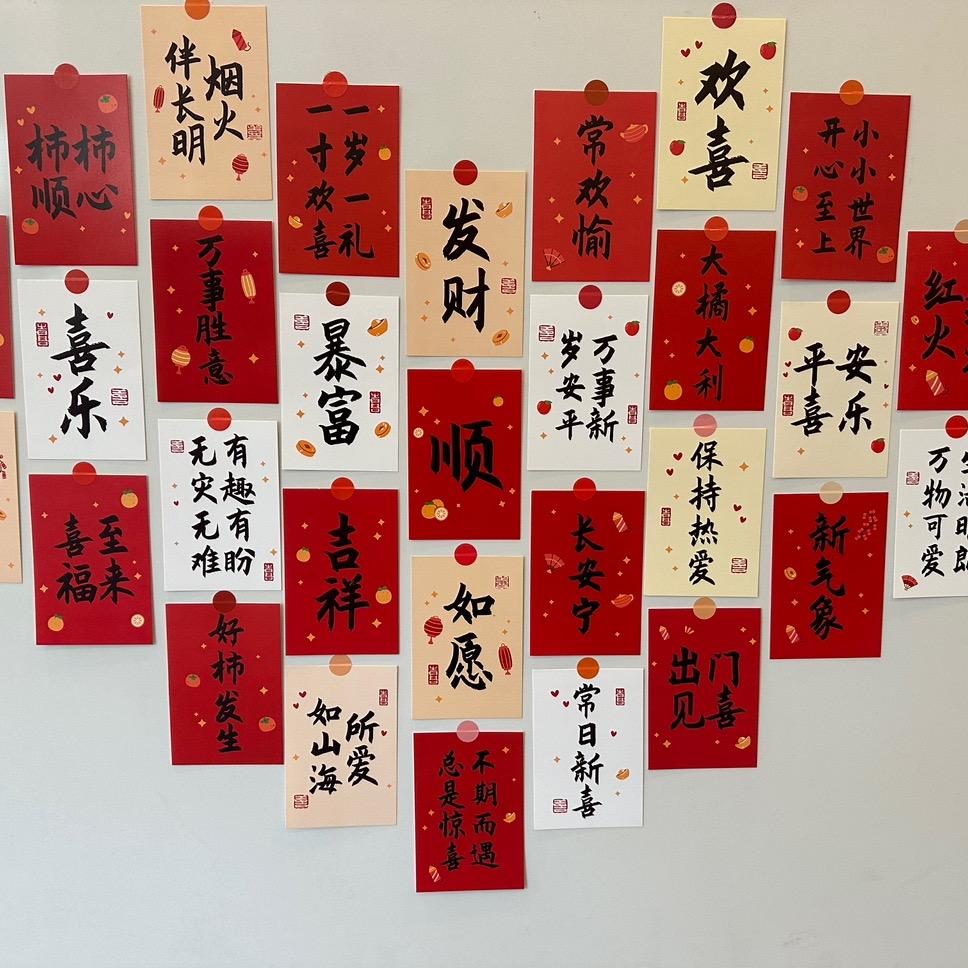 柿柿
顺心
喜乐
喜至
福来
烟火
伴长明
万事胜意
有趣有盼
无灾无难
好柿发生
一岁一礼
一寸欢喜
暴富
吉祥
所爱
如山海
发财
顺
如愿
不期而遇
总是惊喜
常欢愉
万事新
岁安平
长安宁
常日新喜
欢喜
大橘大利
保持热爱
出门
见喜
小小世界
开心至上
平安
喜乐
新气象
红
火
万物可爱